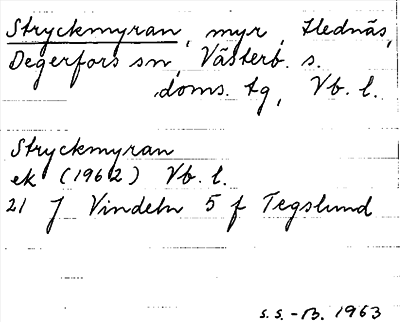 Stryckmyran, myr, Hednäs,
Degerfors sn, Västerb. s.
doms. tg, Vb. l.
Stryckmyran
ek (1962) Vb. l.
21 J Vindeln 5 f Tegslund
s.s.-B. 1963